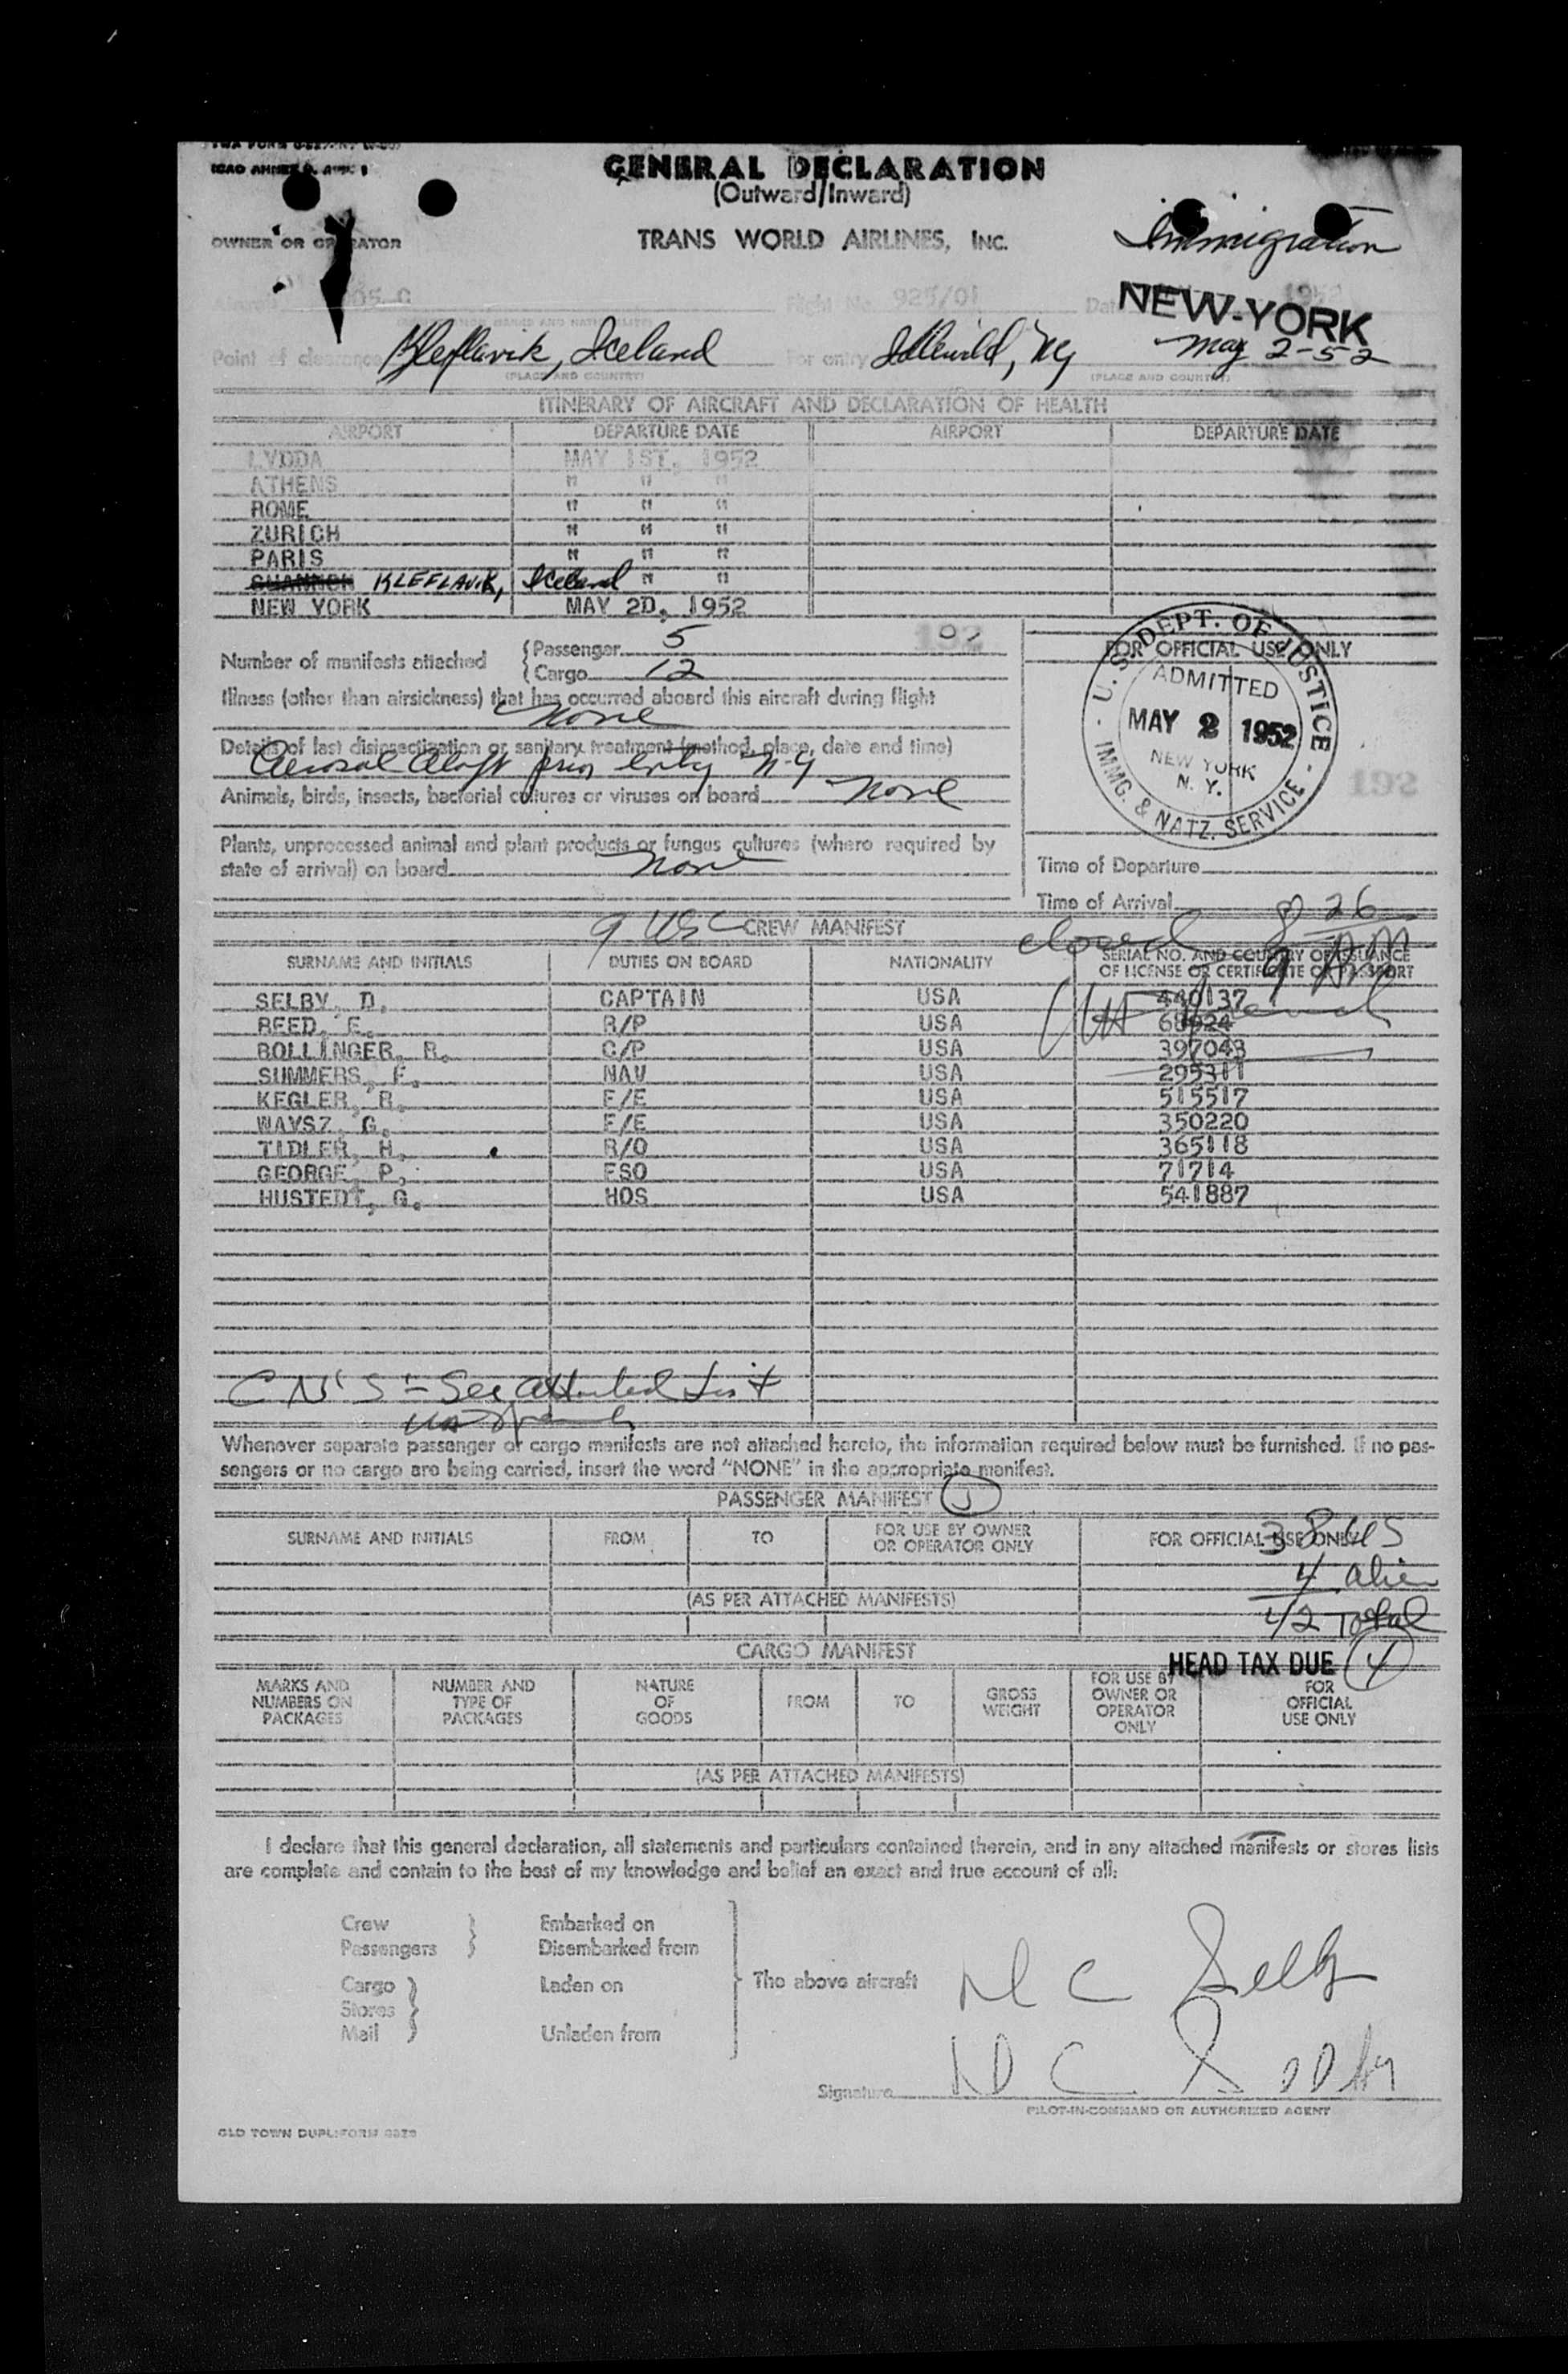 ICAO ANNEX 9, APP. 1
GENERAL DECLARATION
(Outward/Inward)
OWNER OR OPERATOR
TRANS WORLD AIRLINES, INC.
Immigration
Flight No. 925/01
NEW-YORK
Point of clearance Kleflavik, Iceland For entry Idlewild, NY May 2-52
(PLACE AND COUNTRY) (PLACE AND COUNTRY)
ITINERARY OF AIRCRAFT AND DECLARATION OF HEALTH
AIRPORT DEPARTURE DATE AIRPORT DEPARTURE DATE
LYDDA MAY 1ST, 1952
ATHENS " " "
ROME " " "
ZURICH " " "
PARIS " " "
SHANNON KLEFLAVIK, Iceland " "
NEW YORK MAY 2D, 1952
Number of manifests attached
Passenger 5
Cargo 12
192
FOR OFFICIAL USE ONLY
U. S. DEPT. OF JUSTICE
ADMITTED
MAY 2 1952
NEW YORK
N. Y.
IMMG. & NATZ. SERVICE
192
Illness (other than airsickness) that has occurred aboard this aircraft during flight
None
Details of last disinsectization or sanitary treatment (method, place, date and time)
Aerosol Aloft prior entry N-Y
Animals, birds, insects, bacterial cultures or viruses on board None
Plants, unprocessed animal and plant products or fungus cultures (where required by
state of arrival) on board None
Time of Departure
Time of Arrival 8 26
closed 9 AM
9 USC CREW MANIFEST
SURNAME AND INITIALS DUTIES ON BOARD NATIONALITY SERIAL NO. AND COUNTRY OF ISSUANCE
OF LICENSE OR CERTIFICATE OR PASSPORT
SELBY, D. CAPTAIN USA 440137
REED, E. R/P USA 68924
BOLLINGER, R. C/P USA 397043
SUMMERS, F. NAV USA 295311
KEGLER, R. F/E USA 515517
WAYSZ, G. F/E USA 350220
TIDLER, H. R/O USA 365118
GEORGE, P. FSO USA 71714
HUSTEDT, G. HOS USA 541887
See attached List
Whenever separate passenger or cargo manifests are not attached hereto, the information required below must be furnished. If no pas-
sengers or no cargo are being carried, insert the word "NONE" in the appropriate manifest.
PASSENGER MANIFEST
SURNAME AND INITIALS FROM TO FOR USE BY OWNER
OR OPERATOR ONLY FOR OFFICIAL USE ONLY
38 US
4 alien
(AS PER ATTACHED MANIFESTS)
42 Total
CARGO MANIFEST
HEAD TAX DUE 4
MARKS AND
NUMBERS ON
PACKAGES
NUMBER AND
TYPE OF
PACKAGES
NATURE
OF
GOODS
FROM
TO
GROSS
WEIGHT
FOR USE BY
OWNER OR
OPERATOR
ONLY
FOR
OFFICIAL
USE ONLY
(AS PER ATTACHED MANIFESTS)
I declare that this general declaration, all statements and particulars contained therein, and in any attached manifests or stores lists
are complete and contain to the best of my knowledge and belief an exact and true account of all:
Crew
Passengers
Embarked on
Disembarked from
Cargo
Stores
Mail
Laden on
Unladen from
The above aircraft
D C Selby
Signature
PILOT-IN-COMMAND OR AUTHORIZED AGENT
OLD TOWN DUPLIFORM